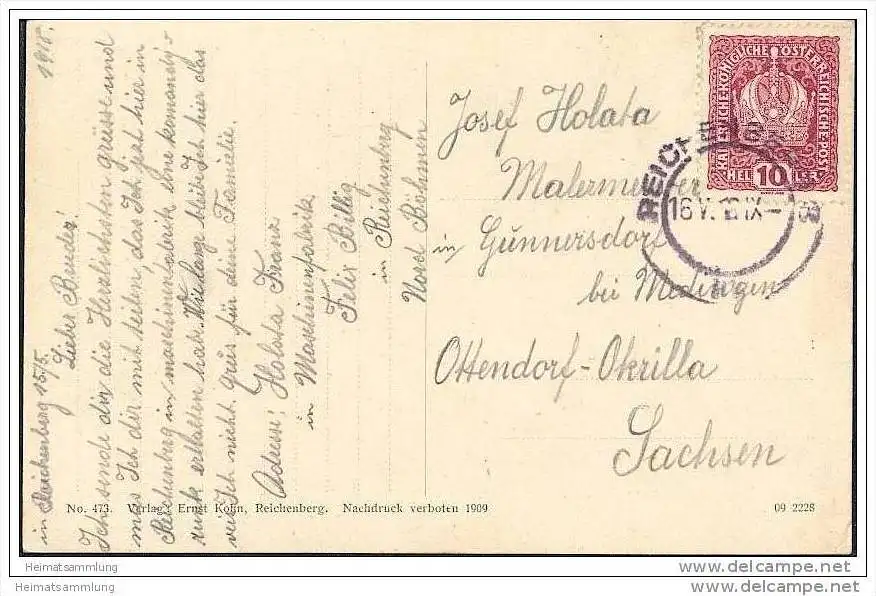 in Reichenberg 15/5. 1918.
Lieber Bruder!
Ich sende dir die Herzlichsten grüsse und
mus Ich dir mit teilen, das Ich jezt hier in
Reichenberg in maschinenfabrik eine
erhalten hab. Wie lange bleibe Ich hier das
weis Ich nicht. Grüs für deine Famielie.
Adress: Holata Franz
in Maschinenfabrik
Felix Billig
in Reichenberg
Nord Böhmen
Josef Holata
Malermeister
in Günnersdorf
bei Medingen
Ottendorf-Okrilla
Sachsen
KAISERLICHE KÖNIGLICHE ÖSTERREICHISCHE POST
HELLER 10 HELLER
REICHENBERG
16 V. IX
No. 473. Verlag: Ernst Kohn, Reichenberg. Nachdruck verboten 1909
09 2228
Heimatsammlung
www.ansichtskarten-center.de
Heimatsammlung
www.ansichtskarten-center.de